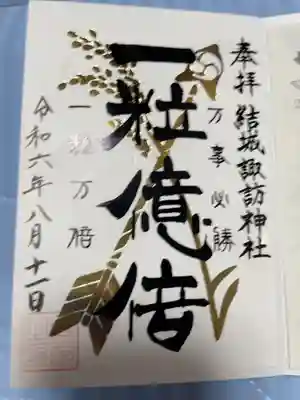 奉拝 結城諏訪神社
万事必勝
一粒億倍
一粒万倍
令和六年八月十一日